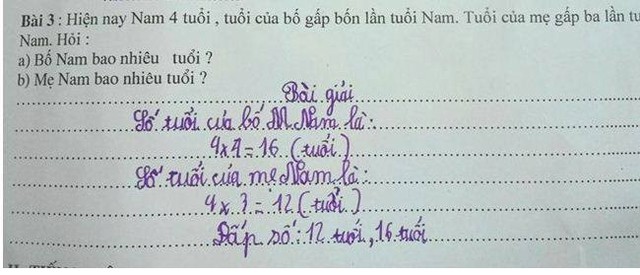 Bài 3 : Hiện nay Nam 4 tuổi , tuổi của bố gấp bốn lần tuổi Nam. Tuổi của mẹ gấp ba lần
Nam. Hỏi :
a) Bố Nam bao nhiêu tuổi ?
b) Mẹ Nam bao nhiêu tuổi ?
Bài giải
Số tuổi của bố Nam là:
4 x 4 = 16 (tuổi)
Số tuổi của mẹ Nam là:
4 x 3 = 12 (tuổi)
Đấp số: 12 tuổi, 16 tuổi